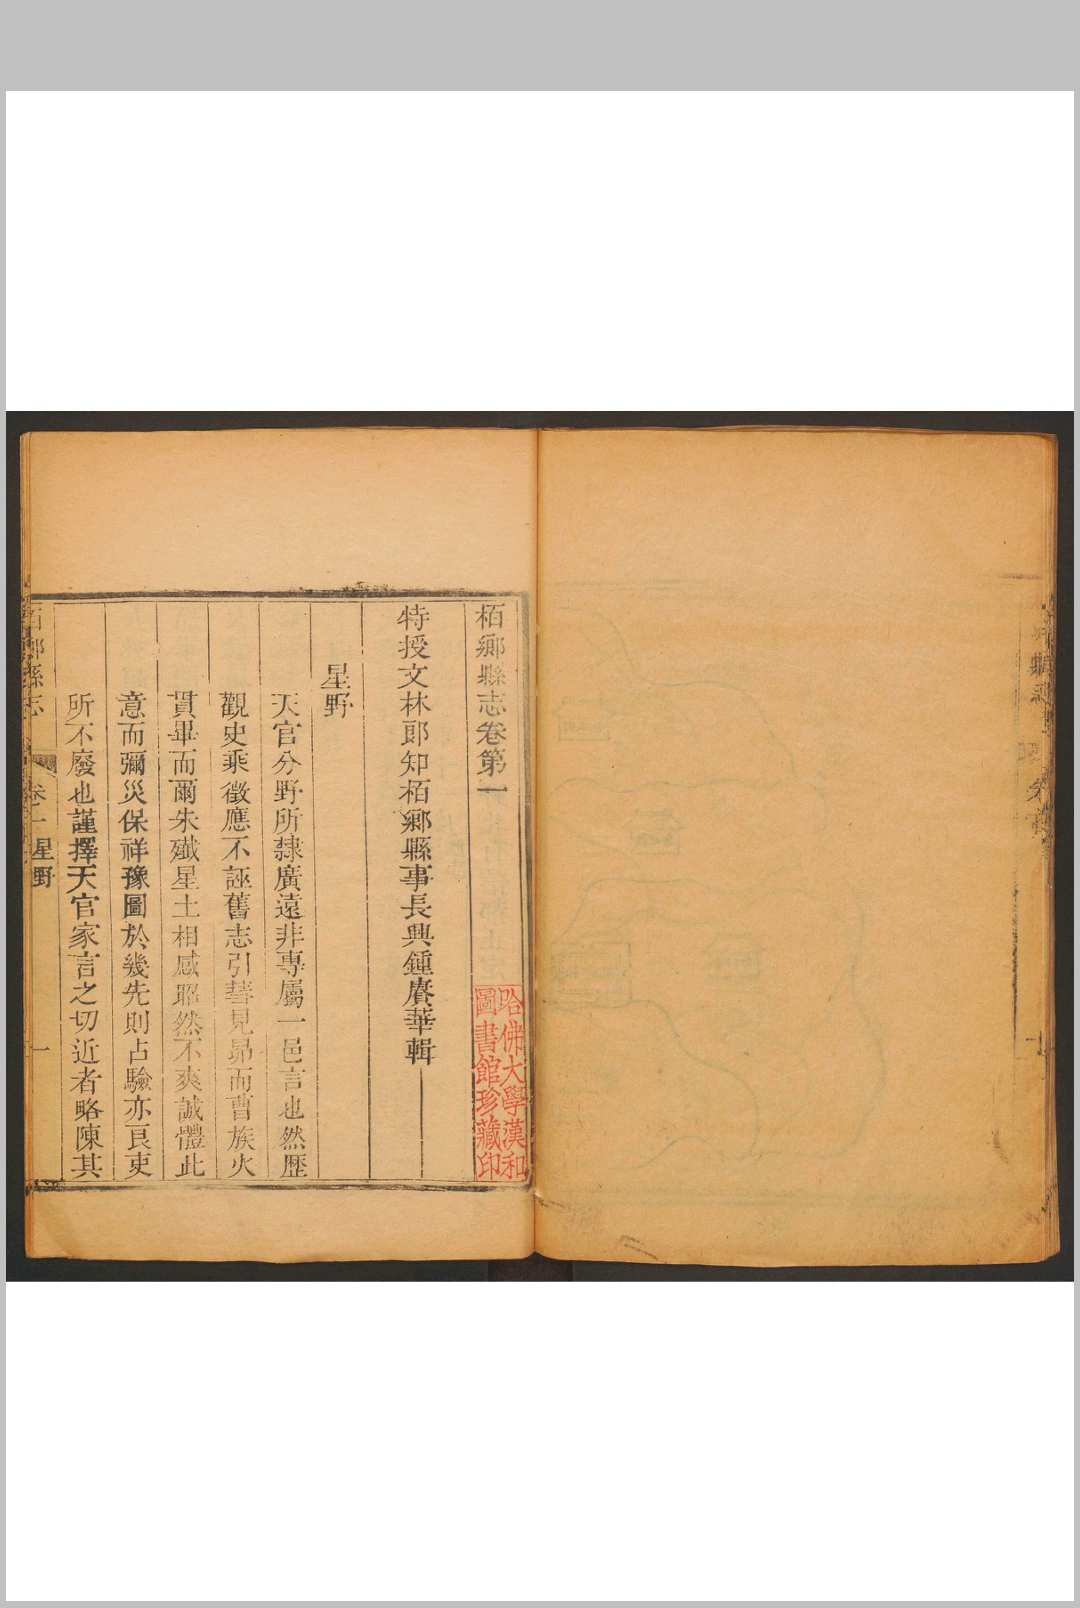 栢鄉縣志卷第一
哈佛大學漢和
圖書館珍藏印
特授文林郎知栢鄉縣事長興鍾賡華輯
星野
天官分野所隸廣遠非專屬一邑言也然歷
觀史乘徵應不誣舊志引彗見昴而曹族火
貫畢而爾朱殲星土相感昭然不爽誠體此
意而彌災保祥豫圖於幾先則占驗亦良吏
所不廢也謹擇天官家言之切近者略陳其
栢鄉縣志 卷一 星野 一